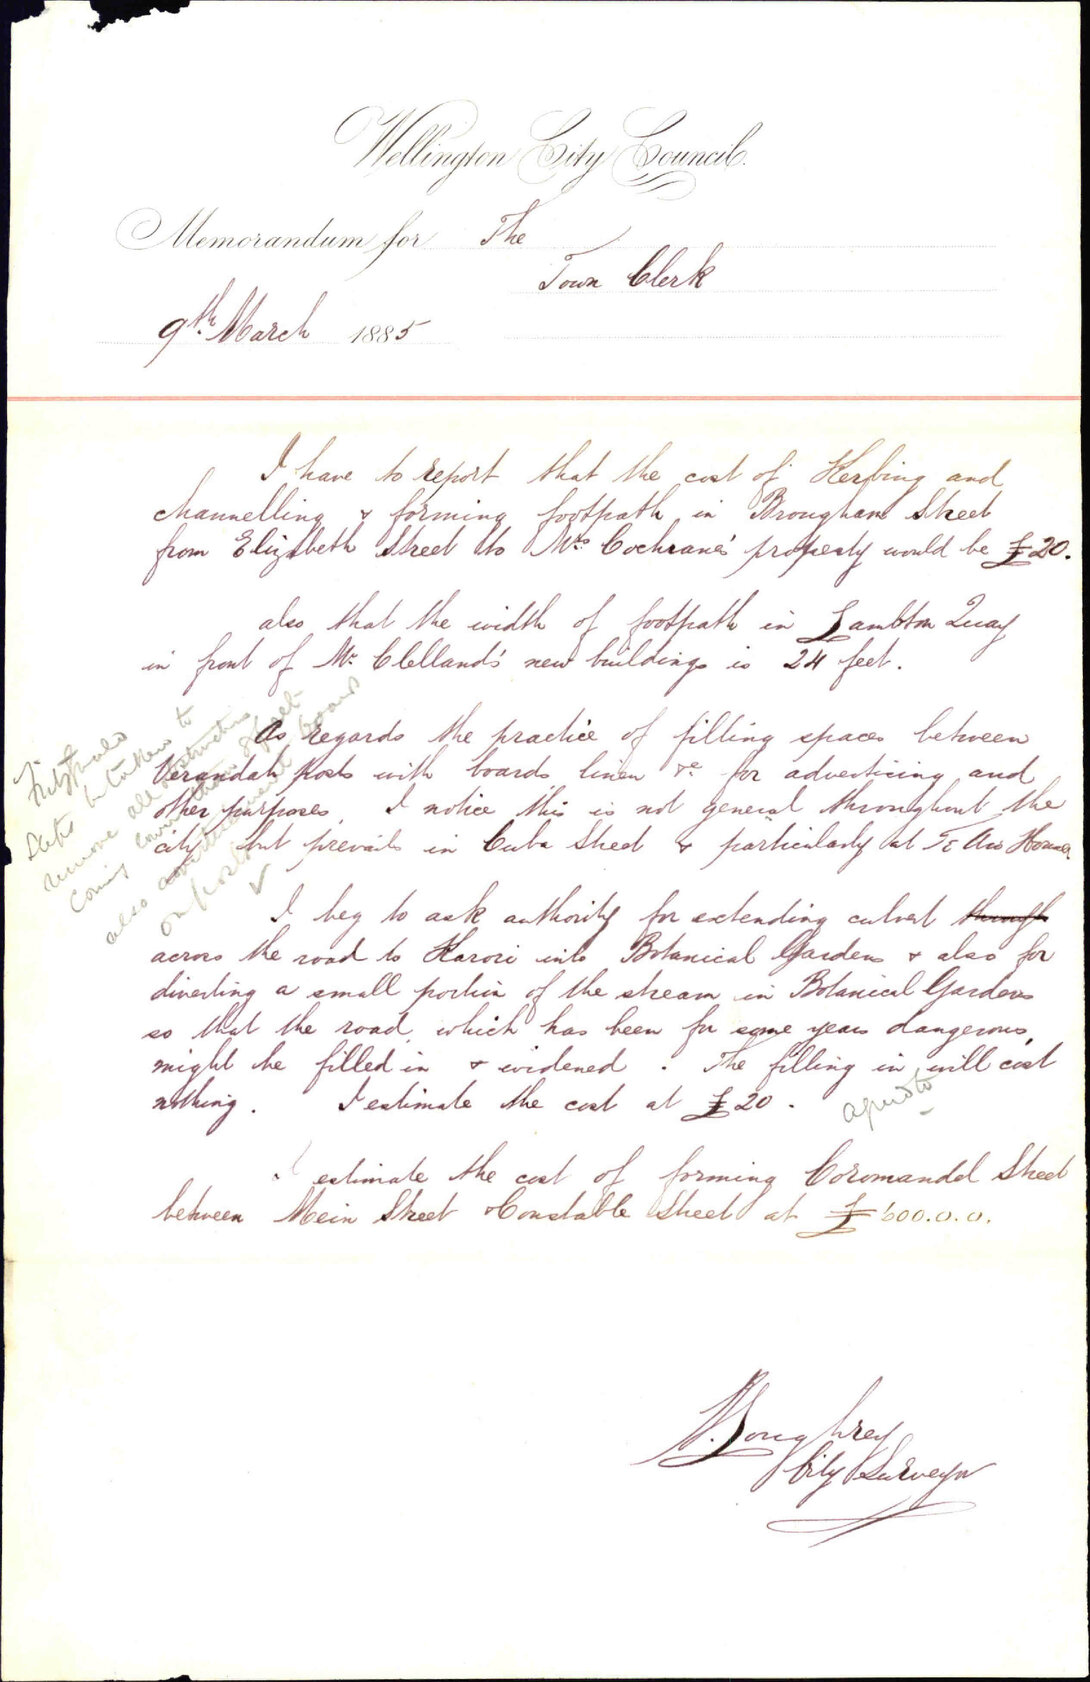 Wellington City Council.
Memorandum for The
Town Clerk
9th. March 1885
I have to report that the cost of Kerbing and
channelling & forming footpath in Brougham Street
from Elizabeth Street to Mrs Cochrane's property would be £20.
also that the width of footpath in Lambton Quay
in front of Mr Clelland's new buildings is 24 feet.
As regards the practice of filling spaces between
Verandah Posts with boards linen &c for advertising and
other purposes, I notice this is not general throughout the
city, but prevails in Cuba Street & particularly at Te Aro House
Steps to be taken to
remove all obstructions
coming
also advertisement boards
on posts
I beg to ask authority for extending culvert through
across the road to Karori into Botanical Gardens & also for
diverting a small portion of the stream in Botanical Gardens
so that the road, which has been for some years dangerous,
might be filled in & widened. The filling in will cost
nothing. I estimate the cost at £20.
agreed to
I estimate the cost of forming Coromandel Street
between Mein Street & Constable Street at £600.0.0.
Loughrey
City Surveyor